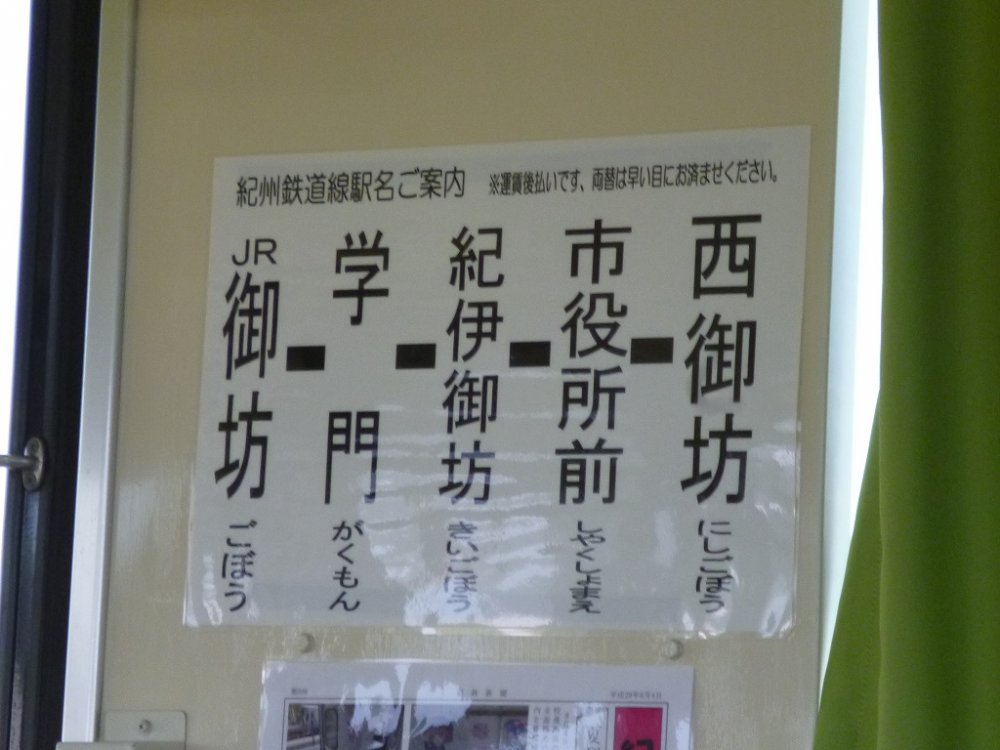 紀州鉄道線駅名ご案内 ※運賃後払いです、両替は早い目にお済ませください。
JR
御坊
ごぼう
学門
がくもん
紀伊御坊
きいごぼう
市役所前
しやくしょまえ
西御坊
にしごぼう